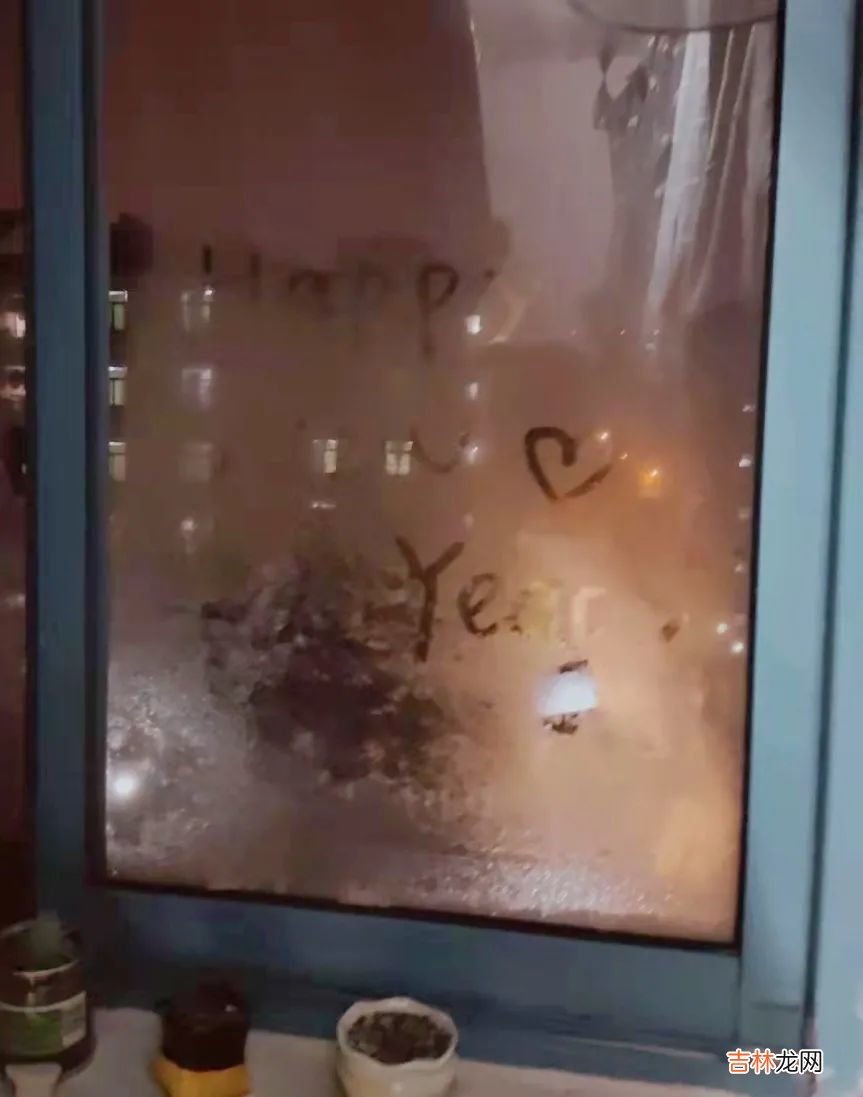 Happy
Year
吉林龙网